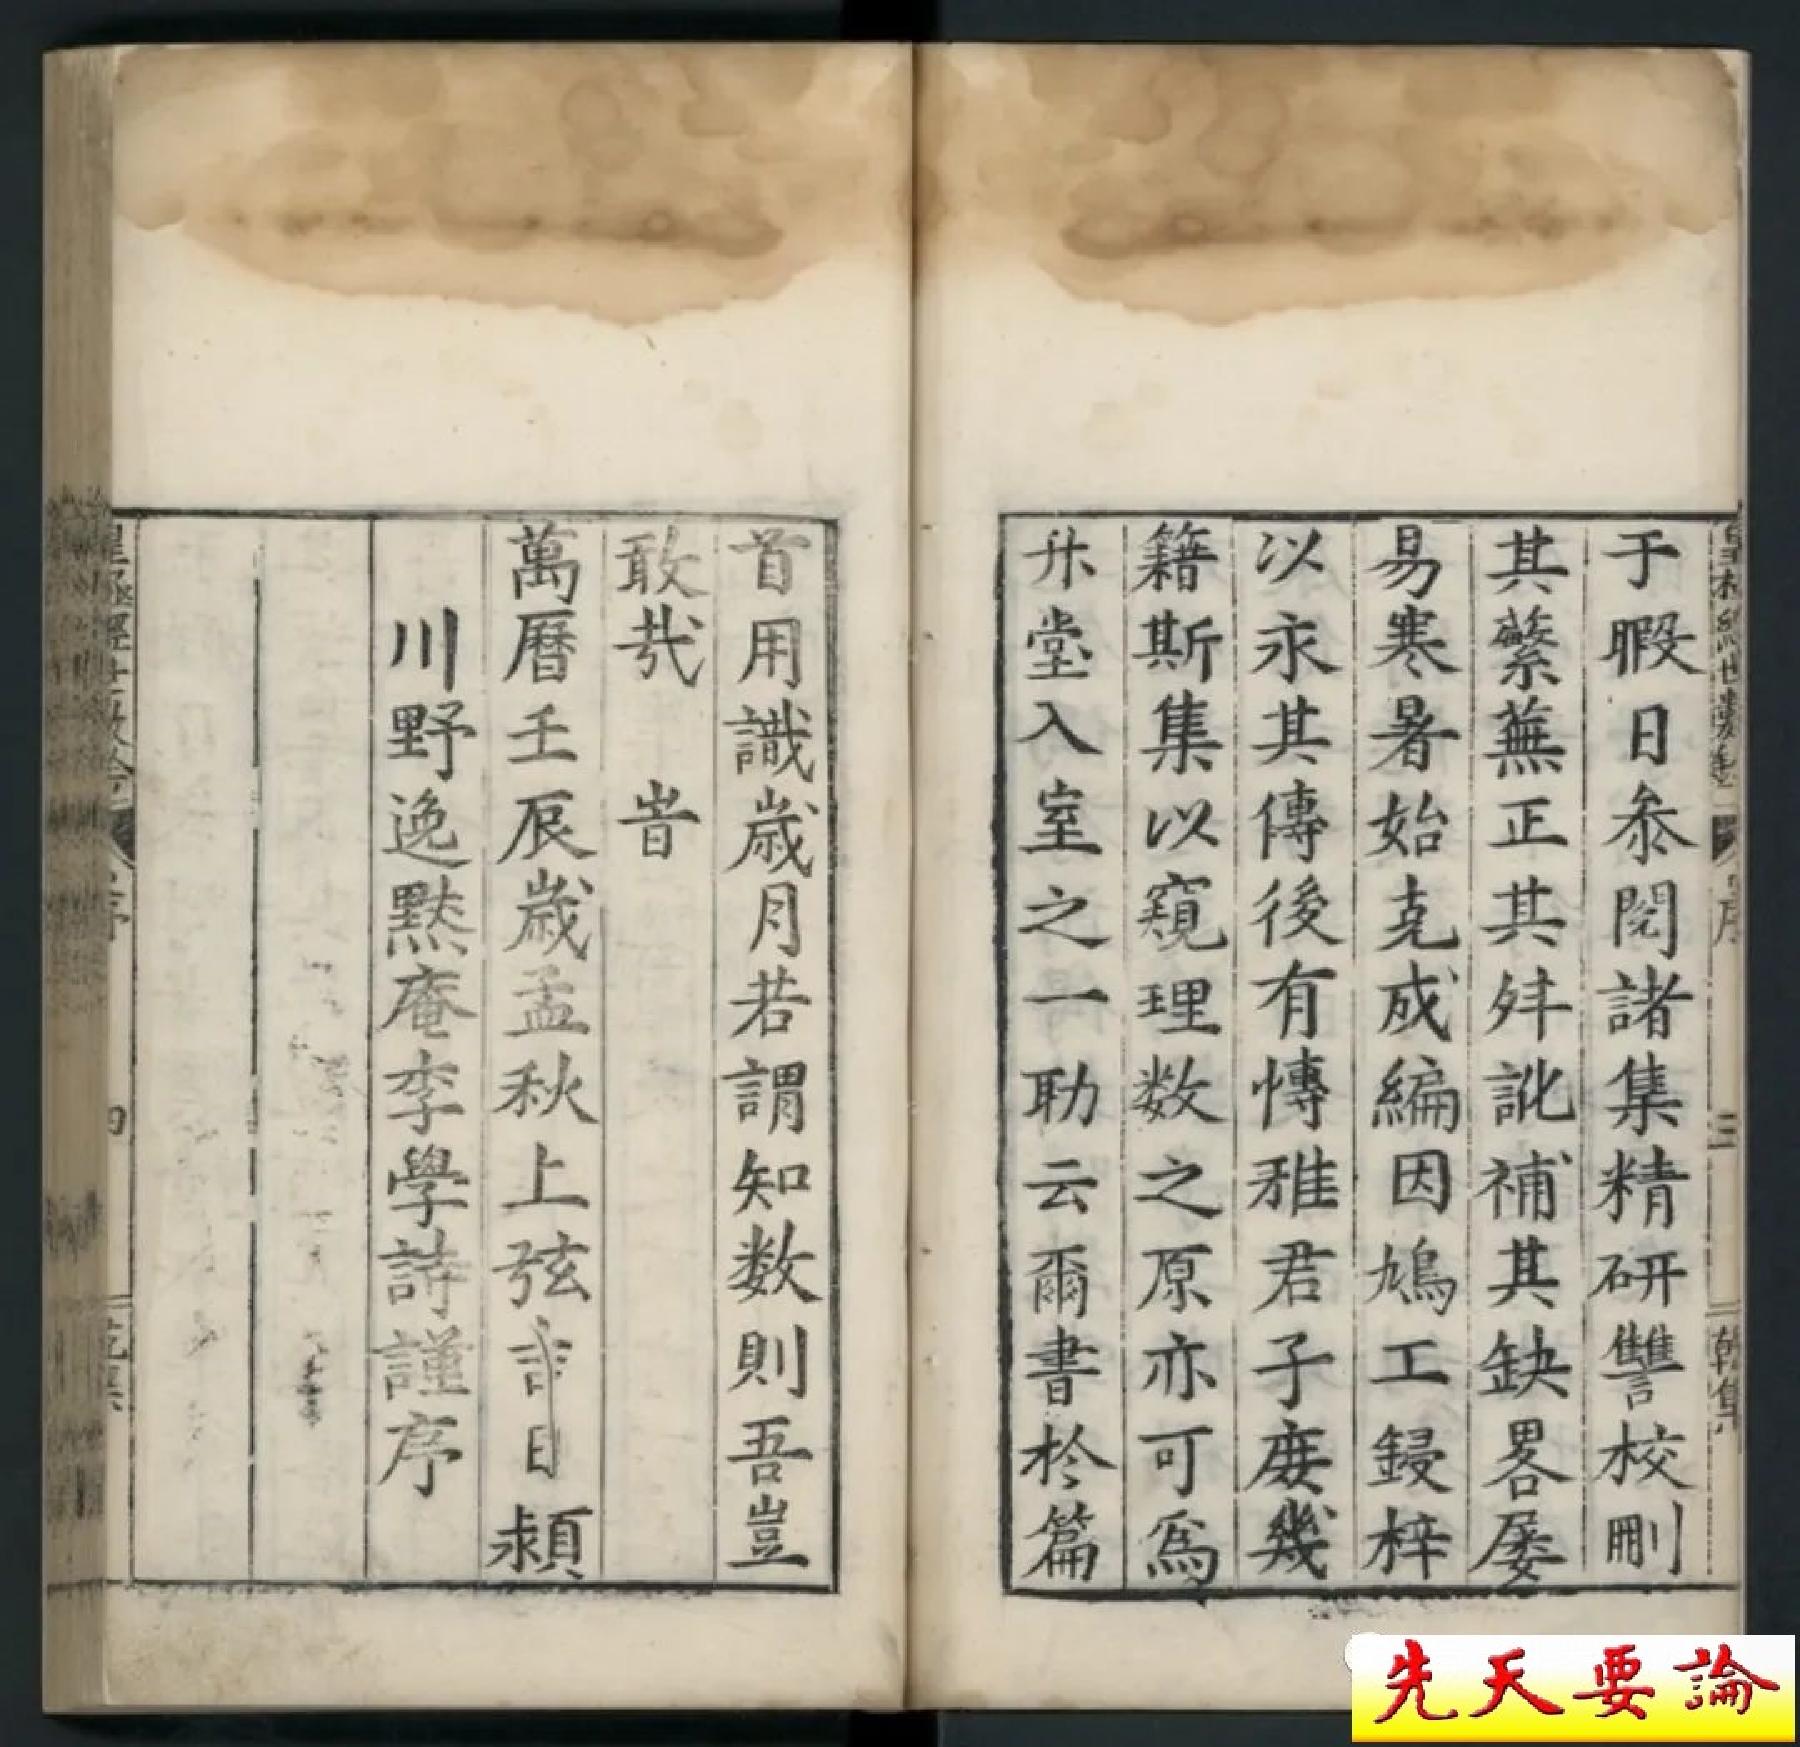 于暇日叅閱諸集精研讐校刪
其蘩蕪正其舛訛補其缺畧屡
易寒暑始克成編因鳩工鋟梓
以永其傳後有慱雅君子庻幾
籍斯集以窺理数之原亦可爲
升堂入室之一助云爾書於篇
首用識歳月若謂知数則吾豈
敢㢤 旹
萬曆壬辰歳孟秋上弦 日潁
川野逸黙庵李學詩謹序
序
三
乾集
序
四
先天要論